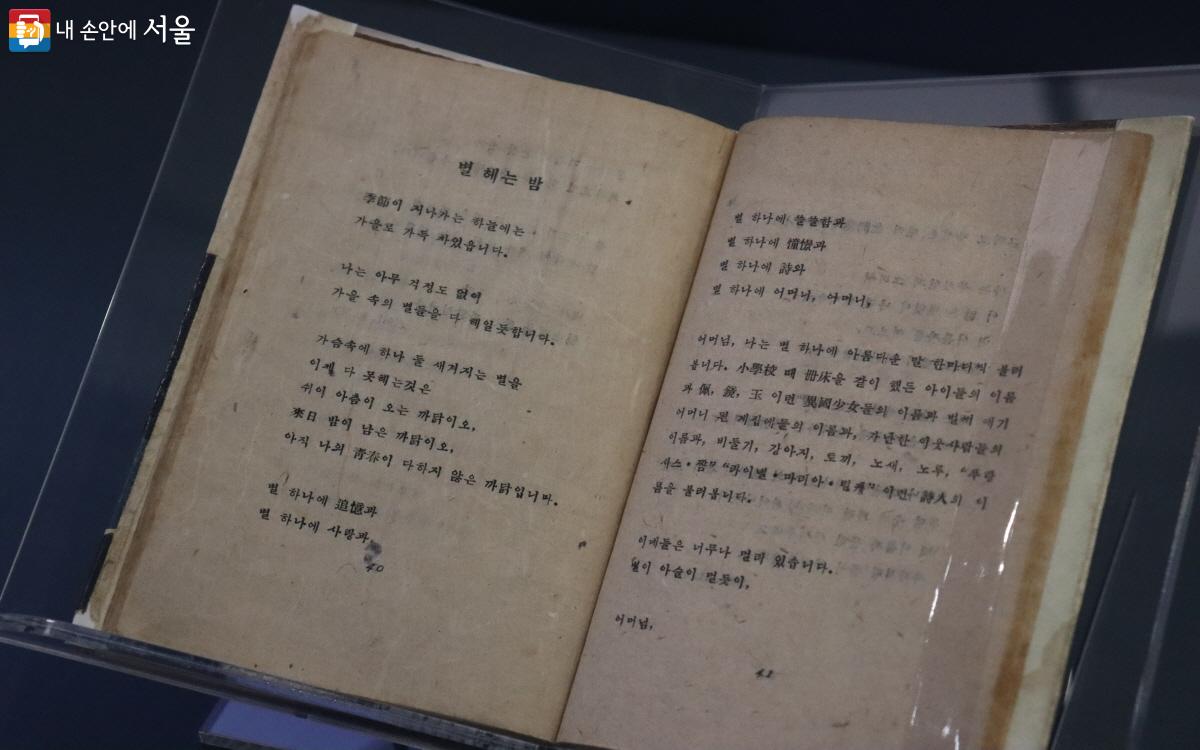 내 손안에 서울
별 헤는 밤
季節이 지나가는 하늘에는
가을로 가득 차있읍니다.
나는 아무 걱정도 없이
가을 속의 별들을 다 헤일듯합니다.
가슴속에 하나 둘 새겨지는 별을
이제 다 못헤는것은
쉬이 아츰이 오는 까닭이오,
來日 밤이 남은 까닭이오,
아직 나의 青春이 다하지 않은 까닭입니다.
별 하나에 追憶과
별 하나에 사랑과
40
별 하나에 쓸쓸함과
별 하나에 憧憬과
별 하나에 詩와
별 하나에 어머니, 어머니,
어머님, 나는 별 하나에 아름다운 말 한마디씩 불러
봅니다. 小學校 때 冊床을 같이 했든 아이들의 이름
과 佩, 鏡, 玉 이런 異國少女들의 이름과 벌써 애기
어머니 된 계집애들의 이름과, 가난한 이웃사람들의
이름과, 비둘기, 강아지, 토끼, 노새, 노루, “푸랑
시스・쨤” “라이넬・마리아・릴케” 이런 詩人의 이
름을 불러봅니다.
이네들은 너무나 멀리 있습니다.
별이 아슬이 멀듯이,
어머님,
41